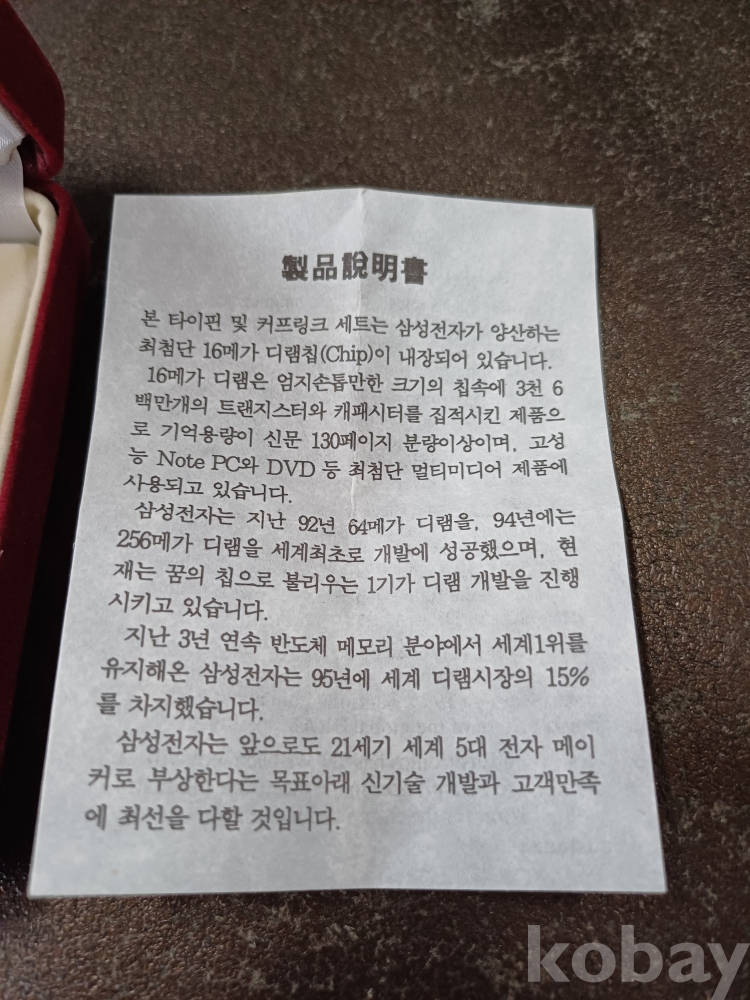 製品說明書
본 타이핀 및 커프링크 세트는 삼성전자가 양산하는
최첨단 16메가 디램칩(Chip)이 내장되어 있습니다.
16메가 디램은 엄지손톱만한 크기의 칩속에 3천 6
백만개의 트랜지스터와 캐패시터를 집적시킨 제품으
로 기억용량이 신문 130페이지 분량이상이며, 고성
능 Note PC와 DVD 등 최첨단 멀티미디어 제품에
사용되고 있습니다.
삼성전자는 지난 92년 64메가 디램을, 94년에는
256메가 디램을 세계최초로 개발에 성공했으며, 현
재는 꿈의 칩으로 불리우는 1기가 디램 개발을 진행
시키고 있습니다.
지난 3년 연속 반도체 메모리 분야에서 세계1위를
유지해온 삼성전자는 95년에 세계 디램시장의 15%
를 차지했습니다.
삼성전자는 앞으로도 21세기 세계 5대 전자 메이
커로 부상한다는 목표아래 신기술 개발과 고객만족
에 최선을 다할 것입니다.
kobay